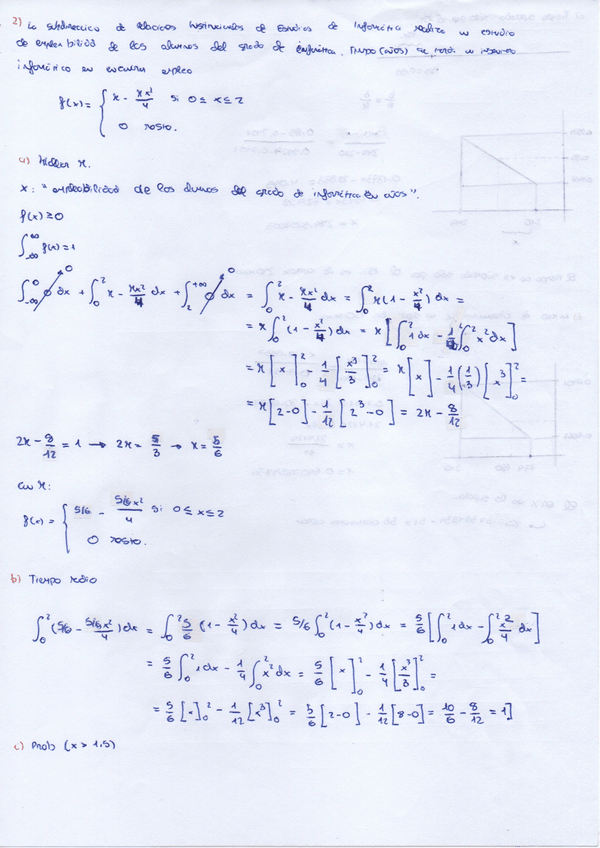 2) La subdirección de relaciones institucionales de Estudios de Informática realiza un estudio
de empleabilidad de los alumnos del grado de informática. Tiempo (años) se tarda un ingeniero
informático en encontrar empleo
f(x) = { K - Kx²/4 si 0 ≤ x ≤ 2
0 resto.
a) Hallar K.
x: "empleabilidad de los alumnos del grado de informática en años".
f(x) ≥ 0
∫_{-∞}^{∞} f(x) = 1
∫_{-∞}^{0} 0 dx + ∫_0^2 K - Kx²/4 dx + ∫_2^{+∞} 0 dx = ∫_0^2 K - Kx²/4 dx = ∫_0^2 K(1 - x²/4) dx =
= K ∫_0^2 (1 - x²/4) dx = K [∫_0^2 1 dx - 1/4 ∫_0^2 x² dx]
= K [x]_0^2 - 1/4 [x³/3]_0^2 = K [x] - 1/4 (1/3) [x³]_0^2 =
= K [2-0] - 1/12 [2³-0] = 2K - 8/12
2K - 8/12 = 1 → 2K = 5/3 → K = 5/6
Con K:
f(x) = { 5/6 - 5/6x²/4 si 0 ≤ x ≤ 2
0 resto.
b) Tiempo medio
∫_0^2 (5/6 - 5/6x²/4) dx = ∫_0^2 5/6 (1 - x²/4) dx = 5/6 ∫_0^2 (1 - x²/4) dx = 5/6 [∫_0^2 1 dx - ∫_0^2 x²/4 dx]
= 5/6 ∫_0^2 1 dx - 1/4 ∫_0^2 x² dx = 5/6 [x]_0^2 - 1/4 [x³/3]_0^2 =
= 5/6 [x]_0^2 - 1/12 [x³]_0^2 = 5/6 [2-0] - 1/12 [8-0] = 10/6 - 8/12 = 1]
c) Prob (x > 1,5)